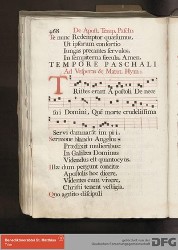 468 De Apost. Temp. Pasch.
Te nunc Redemptor quæsumus,
Ut ipsorum consortio
Jungas precantes servulos,
In sempiterna sæcula. Amen.
TEMPORE PASCHALI
Ad Vesperas & Matut. Hymn.
Tristes erant Apostoli De nece
sui Domini, Quem morte crudelissima
Servi damnarant impii.
Sermone blando Angelus
Prædixit mulieribus:
In Galilæa Dominus
Videndus est quantocyus.
Illæ dum pergunt concitæ
Apostolis hoc dicere,
Videntes eum vivere,
Christi tenent vestigia.
Quo agnito discipuli
DFG